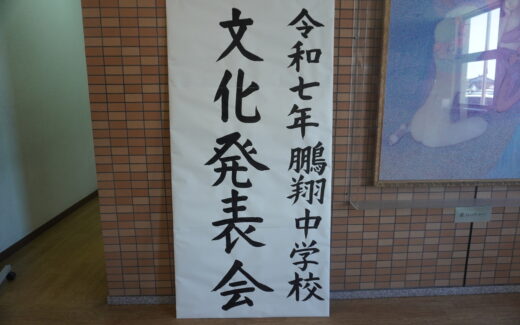 令和七年鵬翔中学校
文化発表会